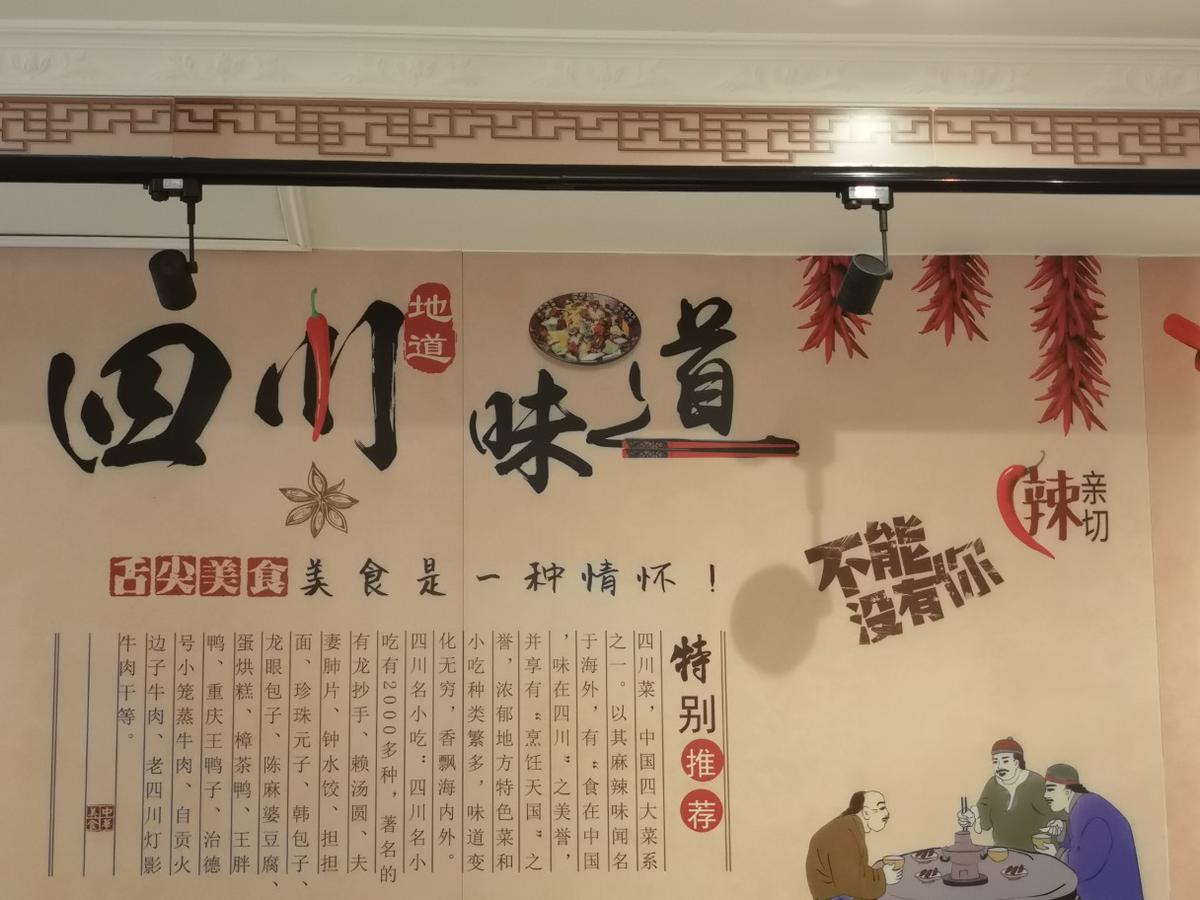 四川
地道
味道
舌尖美食美食是一种情怀!
辣
亲切
不能
没有你
特别推荐
四川菜,中国四大菜系
之一。以其麻辣味闻名
于海外,有“食在中国
,味在四川”之美誉,
并享有“烹饪天国”之
誉,浓郁地方特色菜和
小吃种类繁多,味道变
化无穷,香飘海内外。
四川名小吃:四川名小
吃有2000多种,著名的
有龙抄手、赖汤圆、夫
妻肺片、钟水饺、担担
面、珍珠元子、韩包子、
龙眼包子、陈麻婆豆腐、
蛋烘糕、樟茶鸭、王胖
鸭、重庆王鸭子、治德
号小笼蒸牛肉、自贡火
边子牛肉、老四川灯影
牛肉干等。
中华
美食